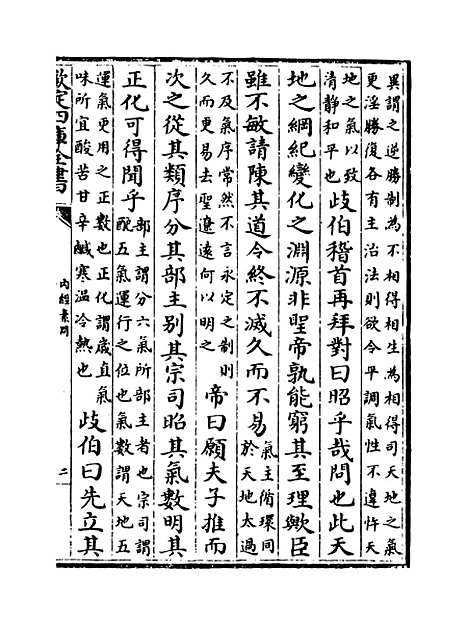 異謂之逆勝制為不相得相生為相得司天地之氣
更淫勝復各有主治法則欲令平調氣性不違忤天
地之氣以致
清静和平也
歧伯稽首再拜對曰昭乎哉問也此天
地之綱紀變化之淵源非聖帝孰能窮其至理歟臣
雖不敏請陳其道令終不滅久而不易
氣主循環同
於天地太過
不及氣序常然不言永定之制則
久而更易去聖遼遠何以明之
帝曰願夫子推而
次之從其類序分其部主别其宗司昭其氣數明其
正化可得聞乎
部主謂分六氣所部主者也宗司謂
配五氣運行之位也氣數謂天地五
運氣更用之正數也正化謂歲直氣
味所宜酸苦甘辛鹹寒温冷熱也
歧伯曰先立其
欽定四庫全書
内經素問
二